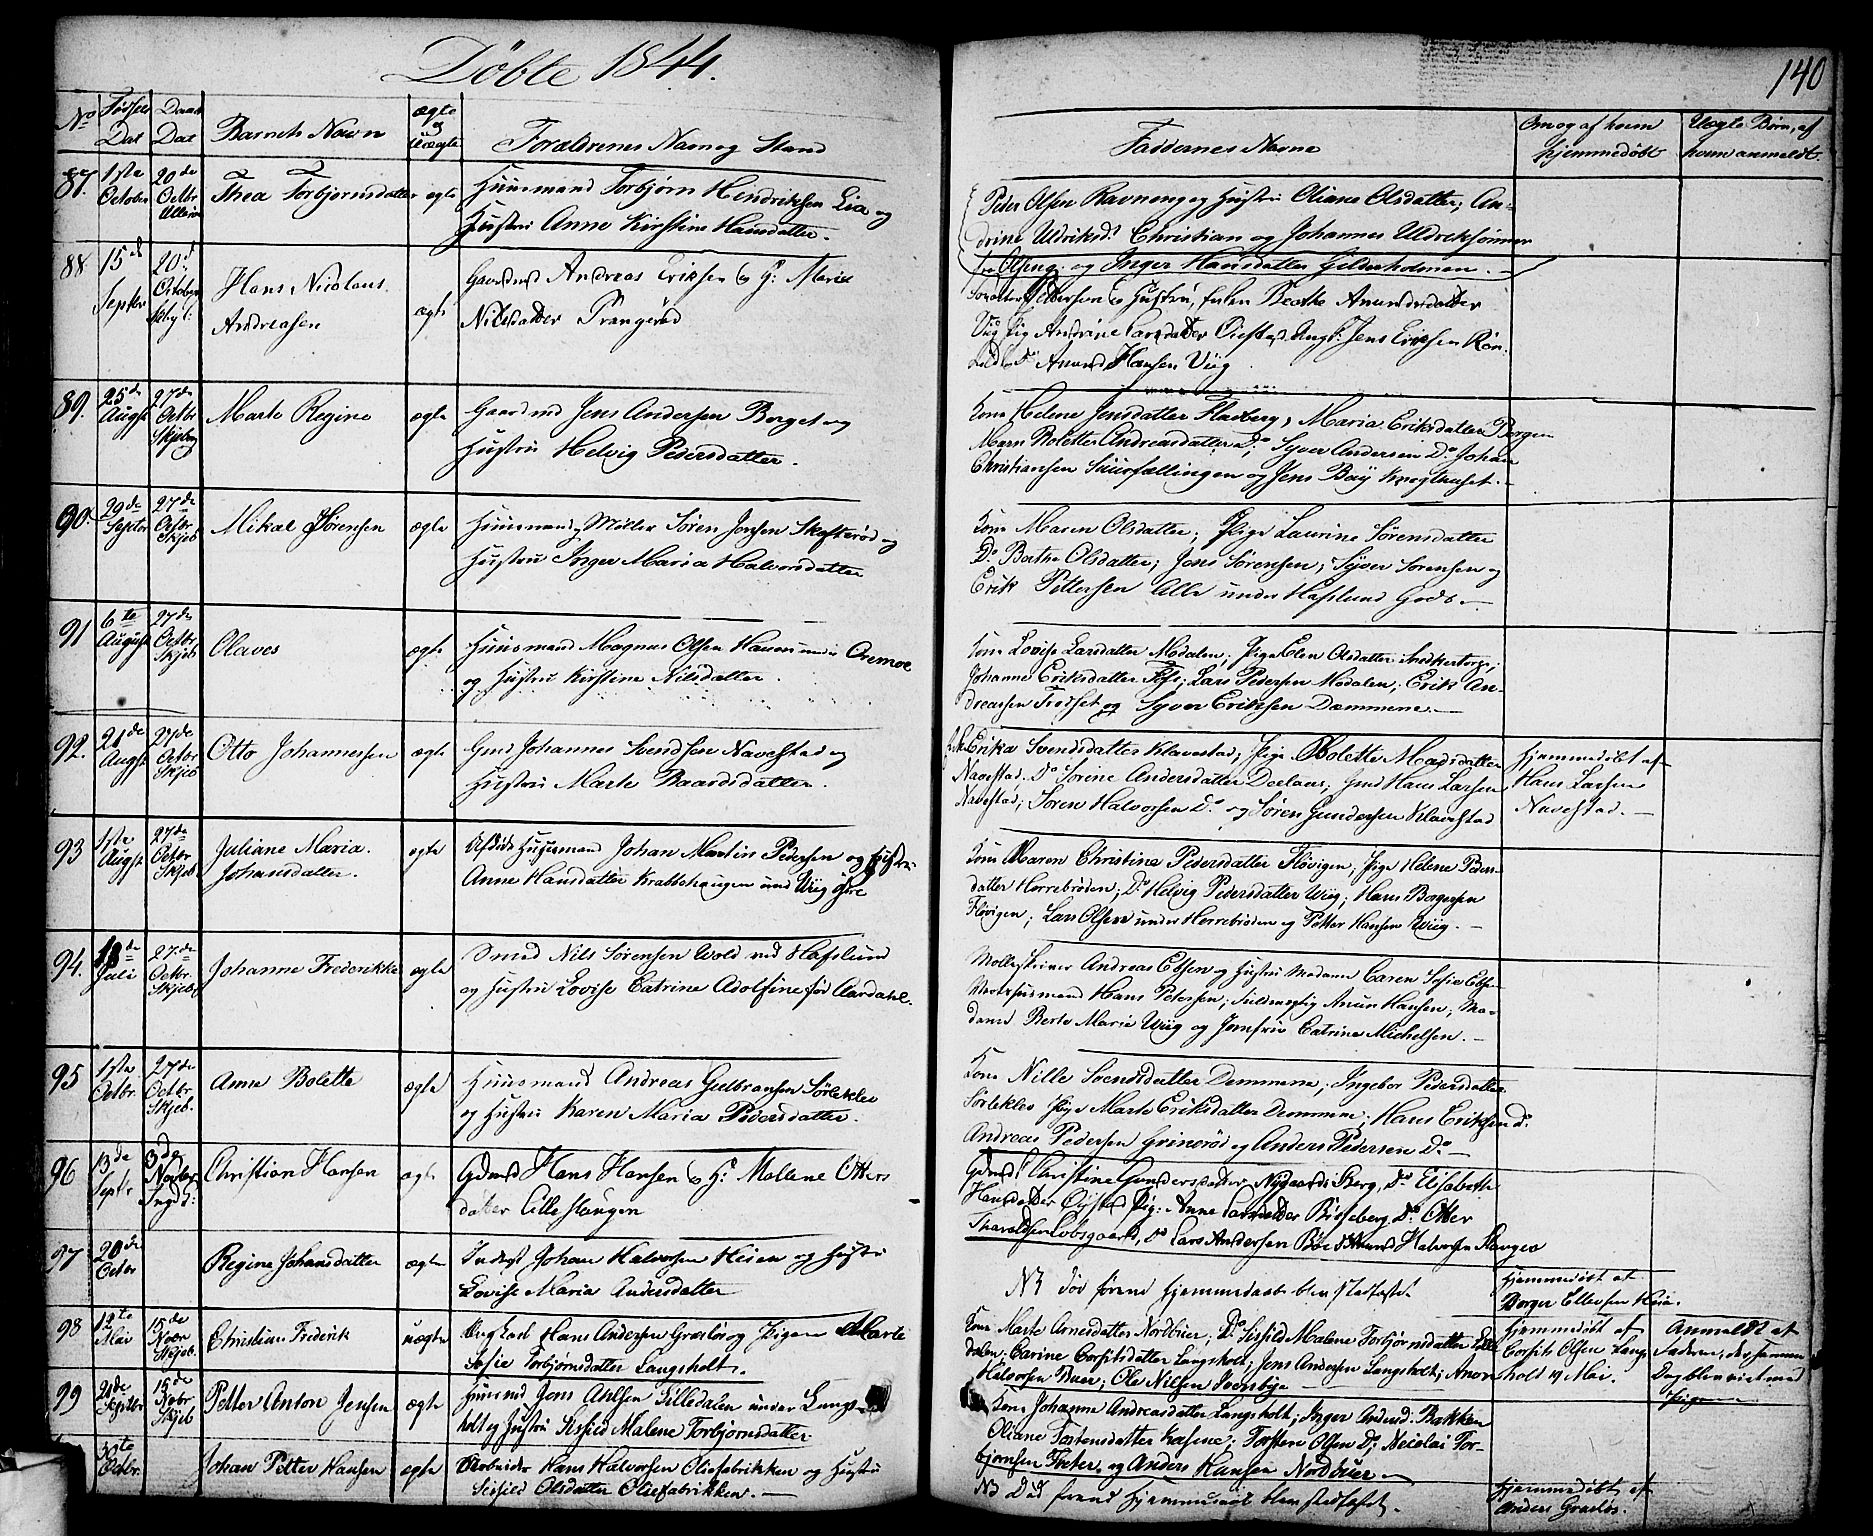 Döbte 1844.
140
No
Födsels Dat
Daab Dat
Barnets Navn
ægte og uægte
Forældrenes Navn og Stand
Faddernes Navne
Om og af hvem hjemmedöbt
Uægte Børn, af hvem anmeldt.
87.
1ste October
20de Octbr
Thea Torbjørnsdatter
ægte
Huusmand Torbjørn Hendriksen Lia og
Hustru Anne Kirstine Hansdatter.
Peter Olsen Ravneng og Hustru Oliane Olsdatter; An-
drine Uldriksd. Christian og Johannes Uldriksønner
og Inger Hansdatter Gilderholmen.
88
15de Septbr
20de October
Hans Nicolaus
Andreasen
ægte
Gaardmd Andreas Eriksen & H. Maria
Nilsdatter Prangerød
Pedersen & Hustru,
Andrine Larsdatter Jens Eriksen Røn-
Amund Hansen Viig
89.
25de Augst
27de Octbr Skjeberg
Marte Regine
ægte
Gaardmd Jens Andersen Borget og
Hustru Helvig Pedersdatter.
Kone Helene Jensdatter Flaberg, Maria Eriksdatter Borgen
Maren Bolette Andreasdatter Do, Syver Andersen Do Johan
Christiansen og Jens Baÿ
90.
29de Septbr
27de Octbr Skjeb
Mikal Sörensen
ægte
Huusmand og Møller Sören Jensen Skofterød og
Hustru Inger Maria Halvorsdatter
Kone Maren Olsdatter; Pige Laurine Sörensdatter
Do Berthe Olsdatter; Jens Sörensen; Syver Sorensen og
Erik Pettersen Alle under Hafslund Gods.
91
6te August
27de Octbr Skjeb
Olaves
ægte
Huusmand Magnus Olsen Haugen under Oremoe
og Hustru Kirstine Nilsdatter.
Kone Lovise Larsdatter Modalen; Pige Elen Olsdatter Snekkertorp;
Johanne Eriksdatter Foss; Lars Pedersen Modalen; Erik An-
dreassen Trodset og Syver Eriksen Dammene.
92.
21de Augst
27de Octbr Skjeb
Otto Johannessen
ægte
Gmd Johannes Svendsen Navestad og
Hustru Marte Baardsdatter.
Erika Svendsdatter Klavestad; Pige Bolette Madsdatter
Navestad, Do Sorine Andersdatter Gmd Hans Larsen
Navestad; Søren Halvorsen Do og Søren Gundersen Klavestad
Hjemmedöbt af
Hans Larsen
Navestad.
93
1ste Augst
27de Octbr Skjeb
Juliane Maria
Johansdatter.
ægte
Huusmand Johan Martin Pedersen og Hustru
Anne Hansdatter Krabbehaugen und Viig Øvre
Kone Maren Christine Pedersdatter Flövigen, Pige Helene Peders-
datter Horrebröden; Do Helvig Pedersdatter Viig; Hans Borgersen
Flövigen; Lars Olsen under Horrebröden og Petter Hansen Viig.
94.
18de Juli
27de Octbr Skjeb
Johanne Frederikke
ægte
Smed Nils Sörensen Wold ved Hafslund
og Hustru Lovise Catrine Adolfine før Aardahl.
Andreas Ebsen og Hustru Madame Caren Sofie Ebsen
Hans Petersen; Fuldmægtig Anun Hansen; Ma-
dame Berte Marie Wiig og Jomfru Catrine Michelsen.
95
1ste Octbr.
27de Octbr Skjeb.
Anne Bolette
ægte
Huusmand Andreas Gulbransen Sörlekles
og Hustru Karen Maria Pedersdatter.
Kone Nille Svendsdatter Demmene; Ingebor Pedersdatter
Sörlekles Pige Marte Eriksdatter Demmene; Hans Eriksen Do
Andreas Pedersen Grinerød og Anders Pedersen Do
96
13de Septbr
3de Novbr
Christian Hansen
ægte
Gdmd Hans Hansen & H. Mallene Otters
datter Lilleslangen
Gdmd Christine Gundersdatter Nygaard Berg, Do Elisabeth
Hansdatter Pig. Anne Larsdatter Bisseberg Do Otter
Tharaldsen Do Lars Andersen Bøe Halvorsen Slangen
97
20de Octbr
Regine Johansdatter
ægte
Inderst Johan Halvorsen Heien og Hustru
Lovise Maria Andersdatter
NB död førend hjemmedaaben blev stadfæstet.
Hjemmedöbt af
Borger Ellevsen Heia.
98
12te Mai
15de Novbr Skjeb.
Christian Frederik
uægte
Ungkarl Hans Andersen Graslös og Pigen Marte
Sofie Torbjørnsdatter Langsholt.
Kone Marte Arnesdatter Nordbuer; Do Sissild Malene Torbjørnsdatter Lille
dalen. Carine Corfitsdatter Langsholt; Jens Andersen Langsholt; Anon
Halvorsen Buer; Ole Nilsen
Hjemmedöbt af
Corfits Olsen Langs
holt 19 Mai.
Anmeldt af
Faderen, der samme
Dag blev viet med
Pigen
99
21de Septbr
15de Novbr Skjeb
Petter Anton Jensen
ægte
Huusmd Jens Anssen Lilledalen under Langs-
holt og Hustru Sissild Malene Torbjørnsdatter
Kone Johanne Andreasdatter Langsholt; Inger Andersd. Bakken
Oliane Torstensdatter Torsten Olsen Do; Nicolai Tor-
bjørnsen Tveter, og Anders Hansen Nordbuer
30te Octbr.
Johan Petter Hansen
ægte
Arbeider Hans Halvorsen Oliefabrikken og Hustru
Sissild Olsdatter Oliefabrikken.
NB Död førend Hjemmedaab blev stadfæstet.
Hjemmedöbt af
Anders Graslös.